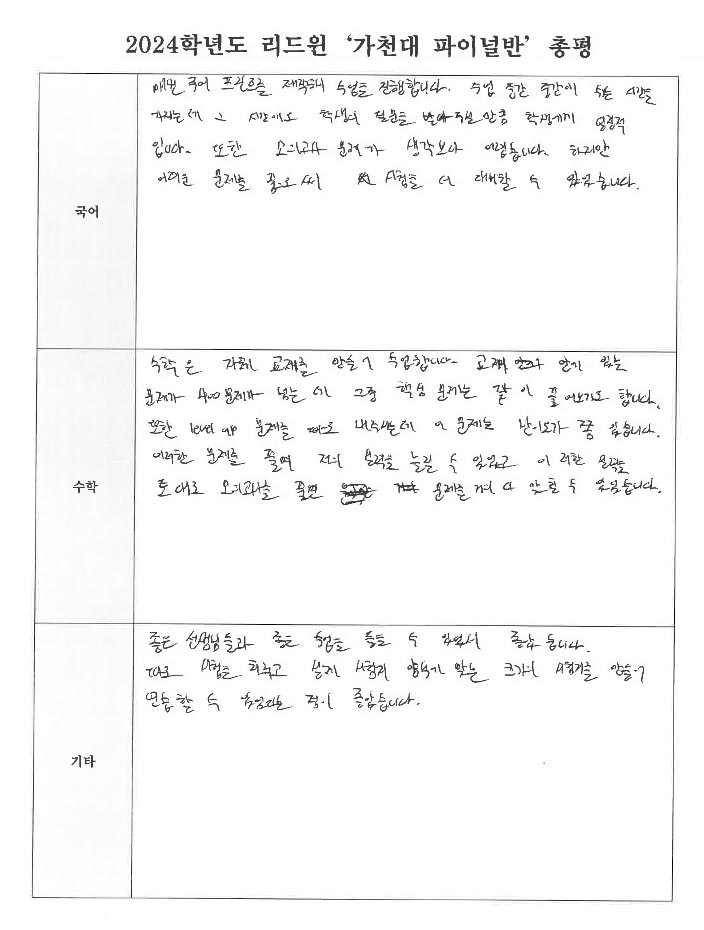 2024학년도 리드윈 ‘가천대 파이널반’ 총평
국어
매번 국어 프린트를 제작해 수업을 진행합니다. 수업 중간 중간에 쉬는 시간을
가지는데 그 시간에도 학생의 질문을 받아주실 만큼 학생에게 열정적
입니다. 또한 모의고사 문제가 생각보다 어렵습니다. 하지만
어려운 문제를 풂으로써 시험을 더 대비할 수 있었습니다.
수학
수학은 자체 교재를 만들어 수업합니다. 교재 안에 있는
문제가 400문제가 넘는데 그중 핵심 문제는 같이 풀어보기도 합니다.
또한 level up 문제를 따로 내주시는데 이 문제는 난이도가 좀 있습니다.
이러한 문제를 풀며 저의 실력을 늘릴 수 있었고 이러한 실력을
토대로 모의고사를 풀면 문제를 거의 다 맞힐 수 있었습니다.
기타
좋은 선생님들과 좋은 수업을 들을 수 있어서 좋았습니다.
따로 시험을 치루고 실제 시험지 양식에 맞는 크기의 시험지를 만들어
연습할 수 있었다는 점이 좋았습니다.